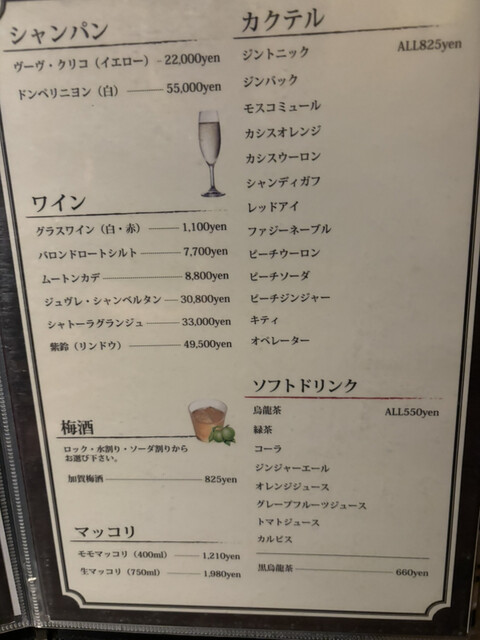 シャンパン
ヴーヴ・クリコ（イエロー） 22,000yen
ドンペリニヨン（白） 55,000yen
ワイン
グラスワイン（白・赤） 1,100yen
バロンドロートシルト 7,700yen
ムートンカデ 8,800yen
ジュヴレ・シャンベルタン 30,800yen
シャトーラグランジュ 33,000yen
紫鈴（リンドウ） 49,500yen
梅酒
ロック・水割り・ソーダ割りから
お選び下さい。
加賀梅酒 825yen
マッコリ
モモマッコリ（400ml） 1,210yen
生マッコリ（750ml） 1,980yen
カクテル
ジントニック ALL825yen
ジンバック
モスコミュール
カシスオレンジ
カシスウーロン
シャンディガフ
レッドアイ
ファジーネーブル
ピーチウーロン
ピーチソーダ
ピーチジンジャー
キティ
オペレーター
ソフトドリンク
烏龍茶 ALL550yen
緑茶
コーラ
ジンジャーエール
オレンジジュース
グレープフルーツジュース
トマトジュース
カルピス
黒烏龍茶 660yen